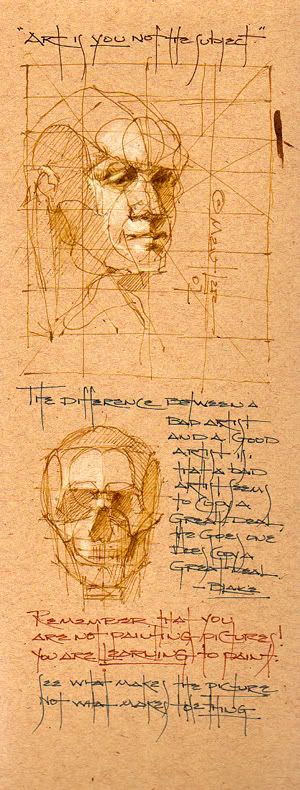 "Art is you not the subject"
The difference between a
bad artist
and a good
artist is
that a bad
artist seems
to copy a
great deal,
the good one
does copy a
great deal
- Blake
Remember that you
are not painting pictures!
You are learning to paint.
See what makes the picture
not what makes the thing